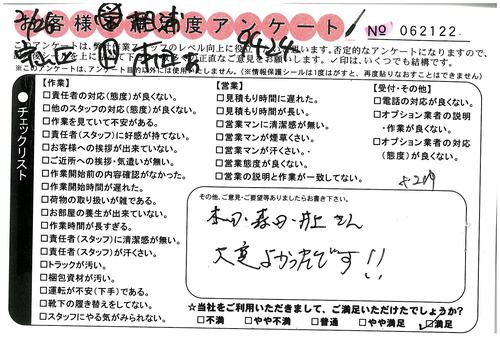 お客様満足度アンケート
№ 062122
※このアンケートは、アンケート目的以外には使用いたしません。(※情報保護シールは1度はがすと、再度貼りなおすことはできません)
チェックリスト
【作業】
□責任者の対応(態度)が良くない。
□他のスタッフの対応(態度)が良くない。
□作業を見ていて安心がない。
□責任者(スタッフ)に好感が持てない。
□お客様への挨拶が出来ていない。
□ご近所への挨拶・気遣いが無い。
□作業開始前の内容確認がなかった。
□作業開始時間が遅れた。
□荷物の取り扱いが雑である。
□お部屋の養生が出来ていない。
□作業時間が長すぎる。
□責任者(スタッフ)に清潔感が無い。
□責任者(スタッフ)が汗くさい。
□トラックが汚い。
□梱包資材が汚い。
□運転が不安(下手)である。
□靴下の履き替えをしてない。
□スタッフにやる気がみられない。
【営業】
□見積もり時間に遅れた。
□見積もり時間が長い。
□営業マンに清潔感が無い。
□営業マンが煙草くさい。
□営業マンが汗くさい。
□営業態度が良くない。
□営業の説明と作業が一致してない。
【受付・その他】
□電話の対応が良くない。
□オプション業者の説明
・作業が良くない。
□オプション業者の対応
(態度)が良くない。
その他、ご意見・ご要望等ありましたらお書き下さい。
本田・森田・井上さん
大変よかったです!!
☆当社をご利用いただきまして、ご満足いただけたでしょうか?
□不満 □やや不満 □普通 □やや満足 ☑満足